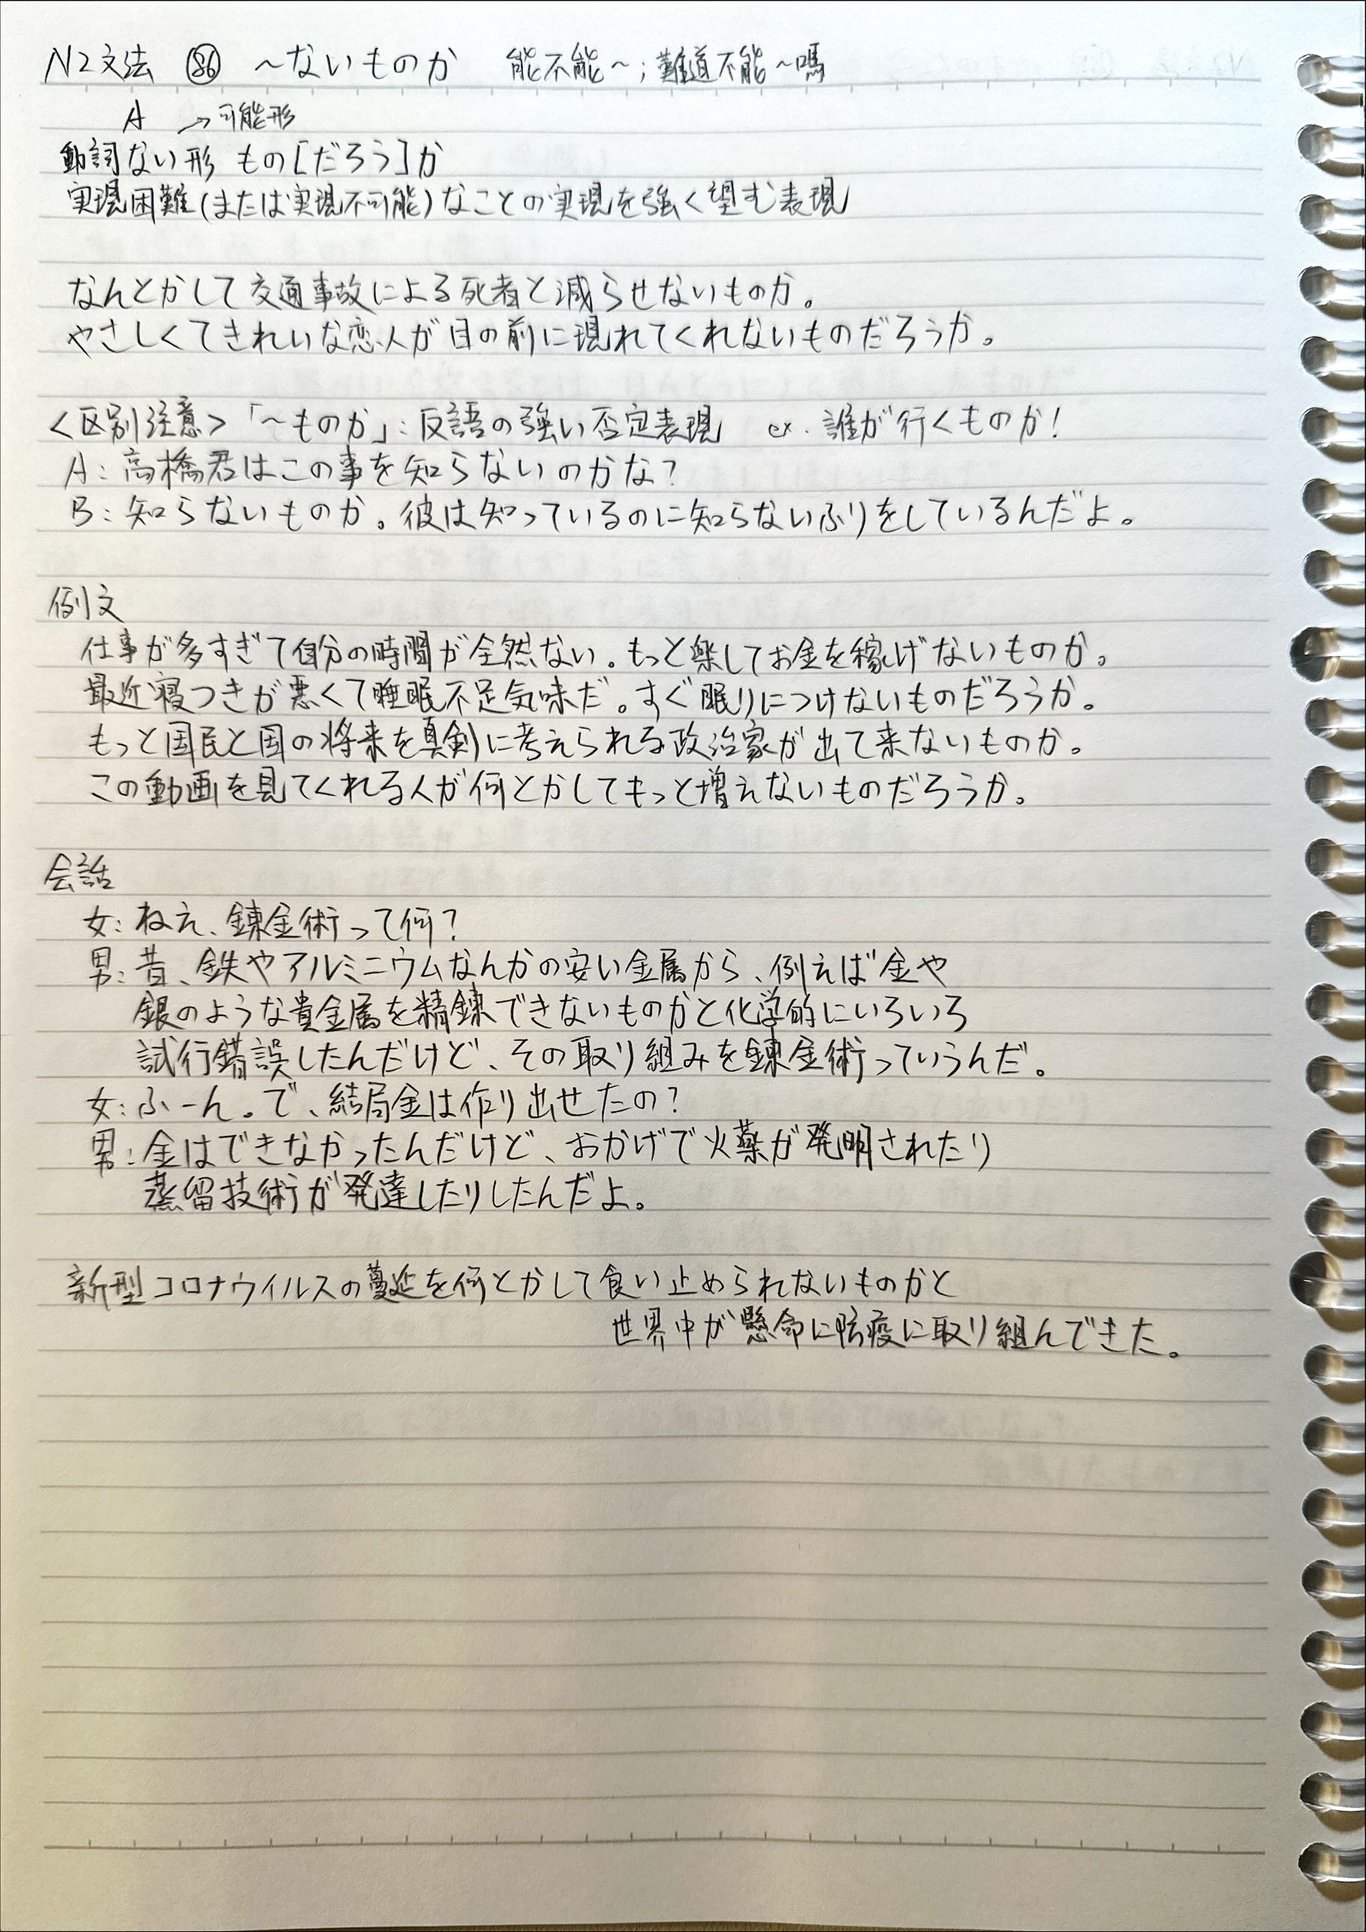 N2文法 86 ～ないものか 能不能～；難道不能～嗎
A →可能形
動詞ない形 もの[だろう]か
実現困難(または実現不可能)なことの実現を強く望む表現
なんとかして交通事故による死者と減らせないものか。
やさしくてきれいな恋人が目の前に現れてくれないものだろうか。
<区別注意>「～ものか」：反語の強い否定表現 ex. 誰が行くものか！
A：高橋君はこの事を知らないのかな？
B：知らないものか。彼は知っているのに知らないふりをしているんだよ。
例文
仕事が多すぎて自分の時間が全然ない。もっと楽してお金を稼げないものか。
最近寝つきが悪くて睡眠不足気味だ。すぐ眠りにつけないものだろうか。
もっと国民と国の将来を真剣に考えられる政治家が出て来ないものか。
この動画を見てくれる人が何とかしてもっと増えないものだろうか。
会話
女：ねえ、錬金術って何？
男：昔、鉄やアルミニウムなんかの安い金属から、例えば金や
銀のような貴金属を精錬できないものかと化学的にいろいろ
試行錯誤したんだけど、その取り組みを錬金術っていうんだ。
女：ふーん。で、結局金は作り出せたの？
男：金はできなかったんだけど、おかげで火薬が発明されたり
蒸留技術が発達したりしたんだよ。
新型コロナウイルスの蔓延を何とかして食い止められないものかと
世界中が懸命に防疫に取り組んできた。